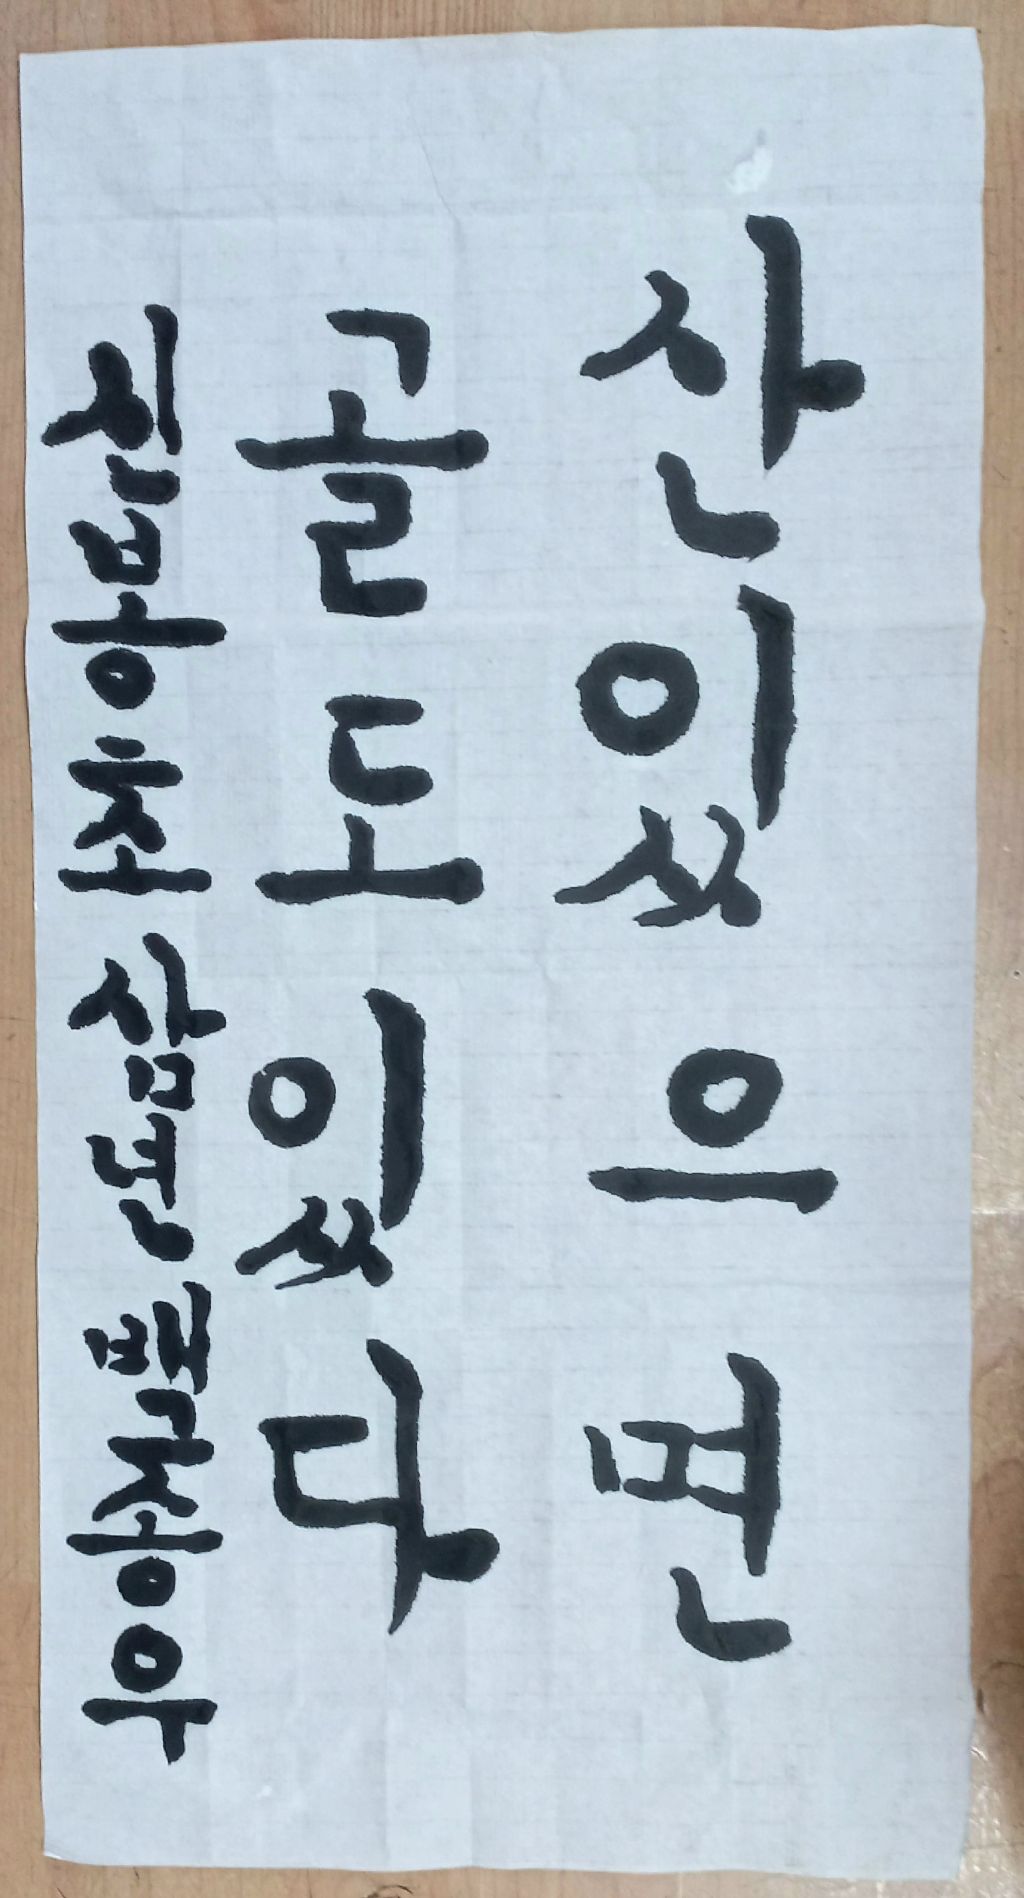 산있으면
골도있다
신봉초 삼년 백종우